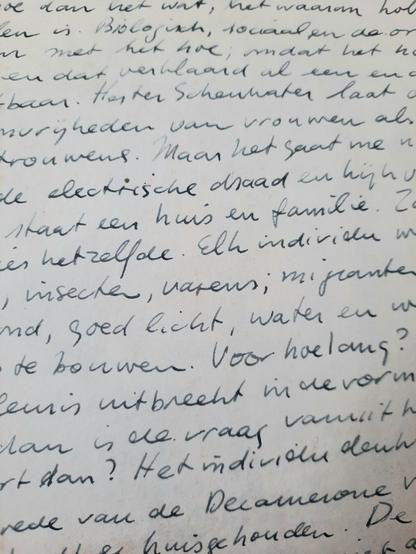 hoe dan het wat, het waarom hou
len is. Biologisch, sociaal en de or
met het hoe; omdat het
en dat verklaard al een en
baar. Hester Schenhater laat
van vrouwen als
trouwens. Maar het gaat me n
de electrische draad en kijk
staat een huis en familie.
hetzelfde. Elk individu
, insecten, varens; migranten
ond, goed licht, water en
te bouwen. Voor hoelang?
uitbreekt in de vorm
dan is de vraag vanuit h
rt dan? Het individu denk
rede van de Decamerone
huisgehouden. De